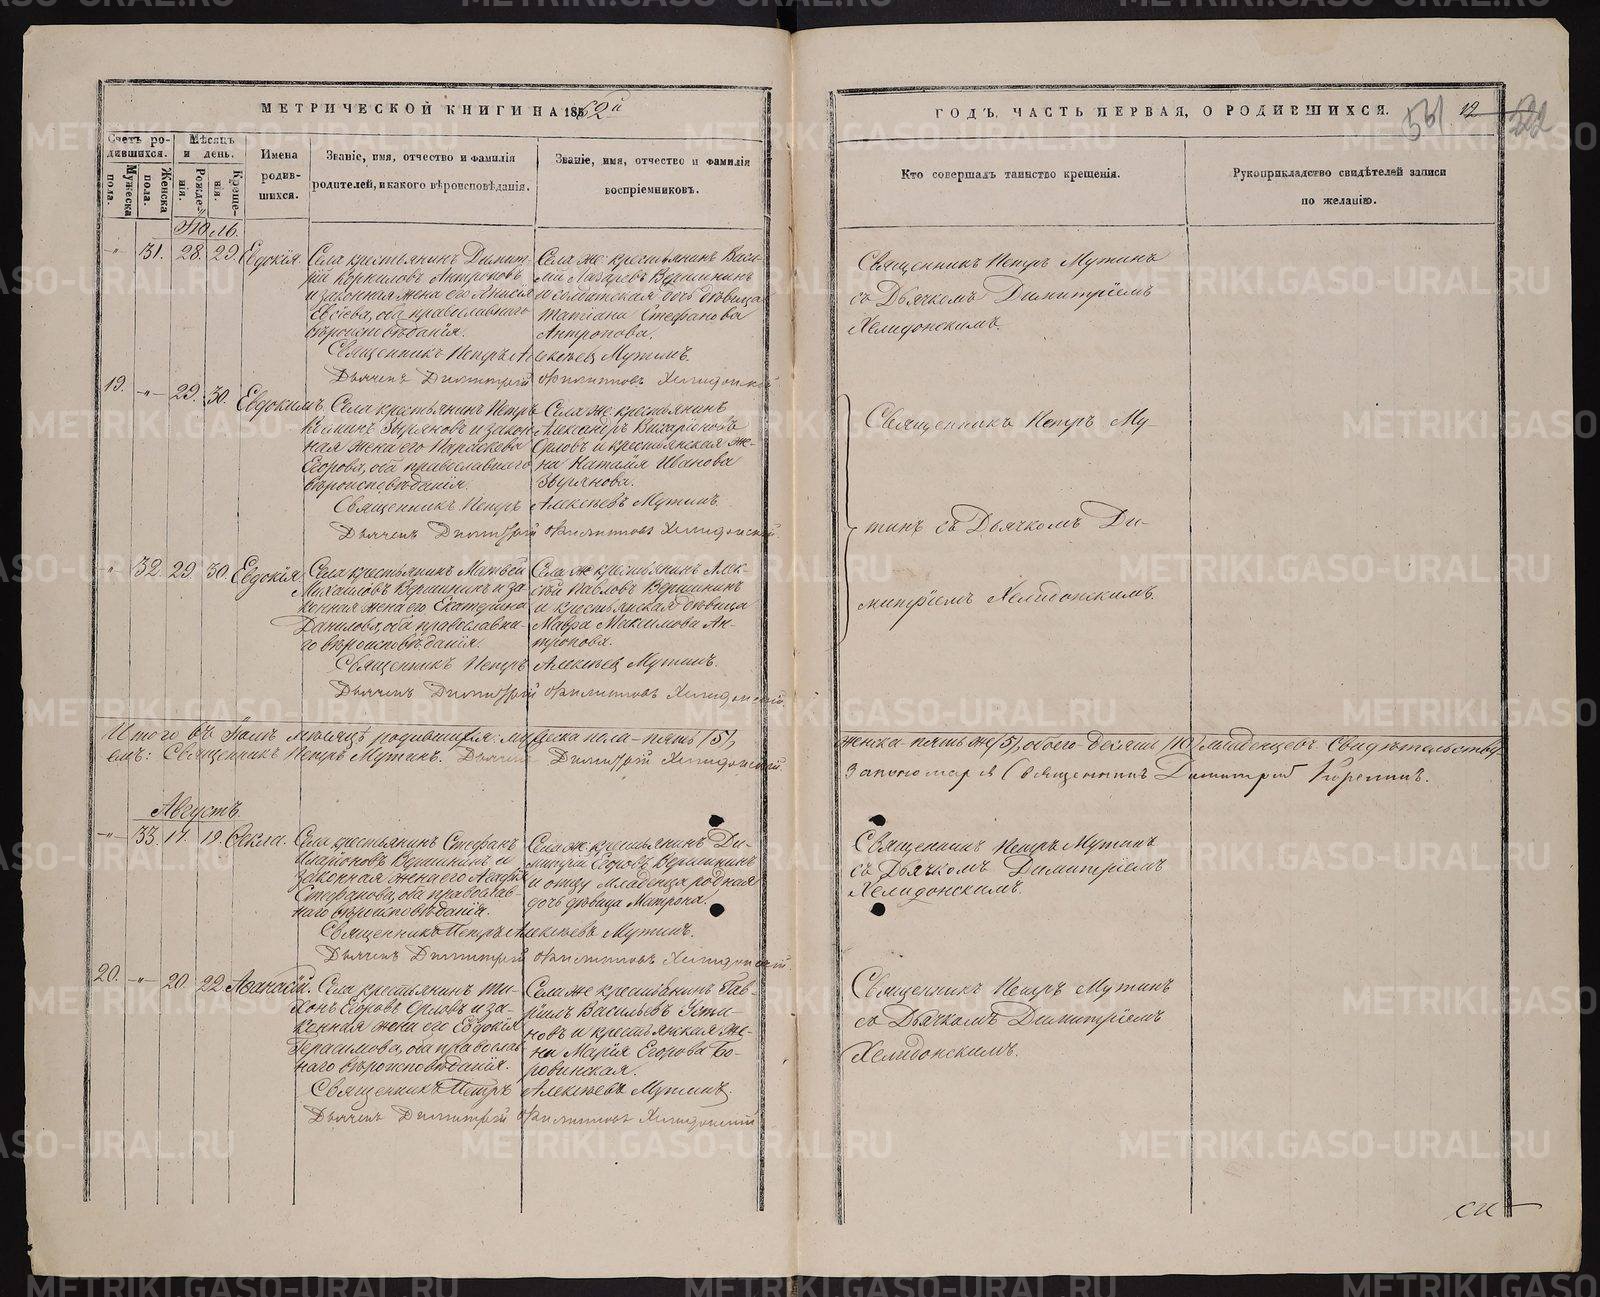 МЕТРИЧЕСКОЙ КНИГИ НА 1862й
ГОДЪ, ЧАСТЬ ПЕРВАЯ, О РОДИВШИХСЯ.
12
Счетъ родившихся.
Мужеска пола.
Женска пола.
Мѣсяцъ и день.
Рожденія.
Крещенія.
Имена родившихся.
Званіе, имя, отчество и фамилія
родителей, и какого вѣроисповѣданія.
Званіе, имя, отчество и фамилія
воспріемниковъ.
Кто совершалъ таинство крещенія.
Рукоприкладство свидѣтелей записи
по желанію.
Іюль.
31. 28. 29. Евдокія.
Села крестьянинъ Димит-
рій Корниловъ Антроповъ
и законная жена его Анисія
Евсіева, оба православнаго
вѣроисповѣданія.
Села же крестьянинъ Васи-
лій Лазаревъ Вершининъ
и солдатская дочь дѣвица
Татіана Стефанова
Антропова.
Священникъ Петръ Алексѣевъ Мутинъ.
Дьячекъ Димитрій Филипповъ Хелидонскій
Священникъ Петръ Мутинъ
съ Дьячкомъ Димитріемъ
Хелидонскимъ.
19. 29. 30. Евдокимъ.
Села крестьянинъ Петръ
Зыряновъ и закон-
ная жена его Параскева
Егорова, оба православнаго
вѣроисповѣданія.
Села же крестьянинъ
Александръ
Орловъ и крестьянская же-
на Наталія Иванова
Зырянова.
Священникъ Петръ Алексѣевъ Мутинъ.
Дьячекъ Димитрій Филипповъ Хелидонскій.
Священникъ Петръ Му-
тинъ съ Дьячкомъ Ди-
митріемъ Хелидонскимъ.
32. 29. 30. Евдокія
Села крестьянинъ Матвѣй
Михаиловъ Вершининъ и за-
конная жена его Екатерина
Данилова, оба православна-
го вѣроисповѣданія.
Села же крестьянинъ Алек-
сѣй Павловъ Вершининъ
и крестьянская дѣвица
Мавра Максимова Ан-
тропова.
Священникъ Петръ Алексѣевъ Мутинъ.
Дьячекъ Димитрій Филипповъ Хелидонскій.
Итого въ Іюлѣ мѣсяцѣ родившихся: мужеска пола – пять /5/,
женска – пять же /5/, обоего десять /10/ младенцевъ. Свидѣтельству
емъ: Священникъ Петръ Мутинъ. Дьячекъ Димитрій Хелидонскій.
За пономаря Священникъ Димитрій
Августъ.
33. 17. 19. Ѳекла.
Села крестьянинъ Стефанъ
Иларіоновъ Вершининъ и
законная жена его
Стефанова, оба православ-
наго вѣроисповѣданія.
Села же крестьянинъ Ди-
митрій Егоровъ Вершининъ
и отцу младенца родная
дочь дѣвица Матрона.
Священникъ Петръ Алексѣевъ Мутинъ.
Дьячекъ Димитрій Филипповъ Хелидонскій
Священникъ Петръ Мутинъ
съ Дьячкомъ Димитріемъ
Хелидонскимъ.
20. 20. 22. Аѳанасій.
Села крестьянинъ Ти-
хонъ Егоровъ Орловъ и за-
конная жена его Евдокія
Герасимова, оба православ-
наго вѣроисповѣданія.
Села же крестьянинъ Гав-
ріилъ Васильевъ Усти-
новъ и крестьянская же-
на Марія Егорова Бо-
ровинская.
Священникъ Петръ Алексѣевъ Мутинъ.
Дьячекъ Димитрій Филипповъ Хелидонскій
Священникъ Петръ Мутинъ
съ Дьячкомъ Димитріемъ
Хелидонскимъ.
METRIKI.GASO-URAL.RU